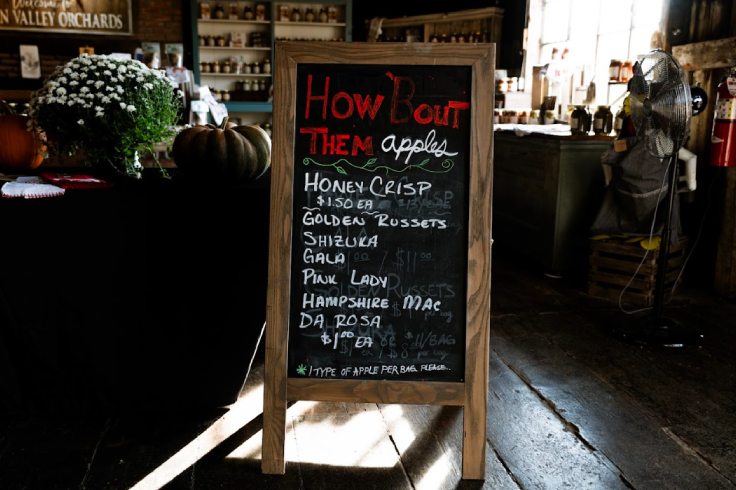 Welcome to
N VALLEY ORCHARDS
HOW 'BOUT
THEM apples
HONEY CRISP
$1.50 EA
GOLDEN RUSSETS
SHIZUKA
GALA
PINK LADY
HAMPSHIRE MAC
DA ROSA
$1.00 EA
1 TYPE OF APPLE PER BAG PLEASE..